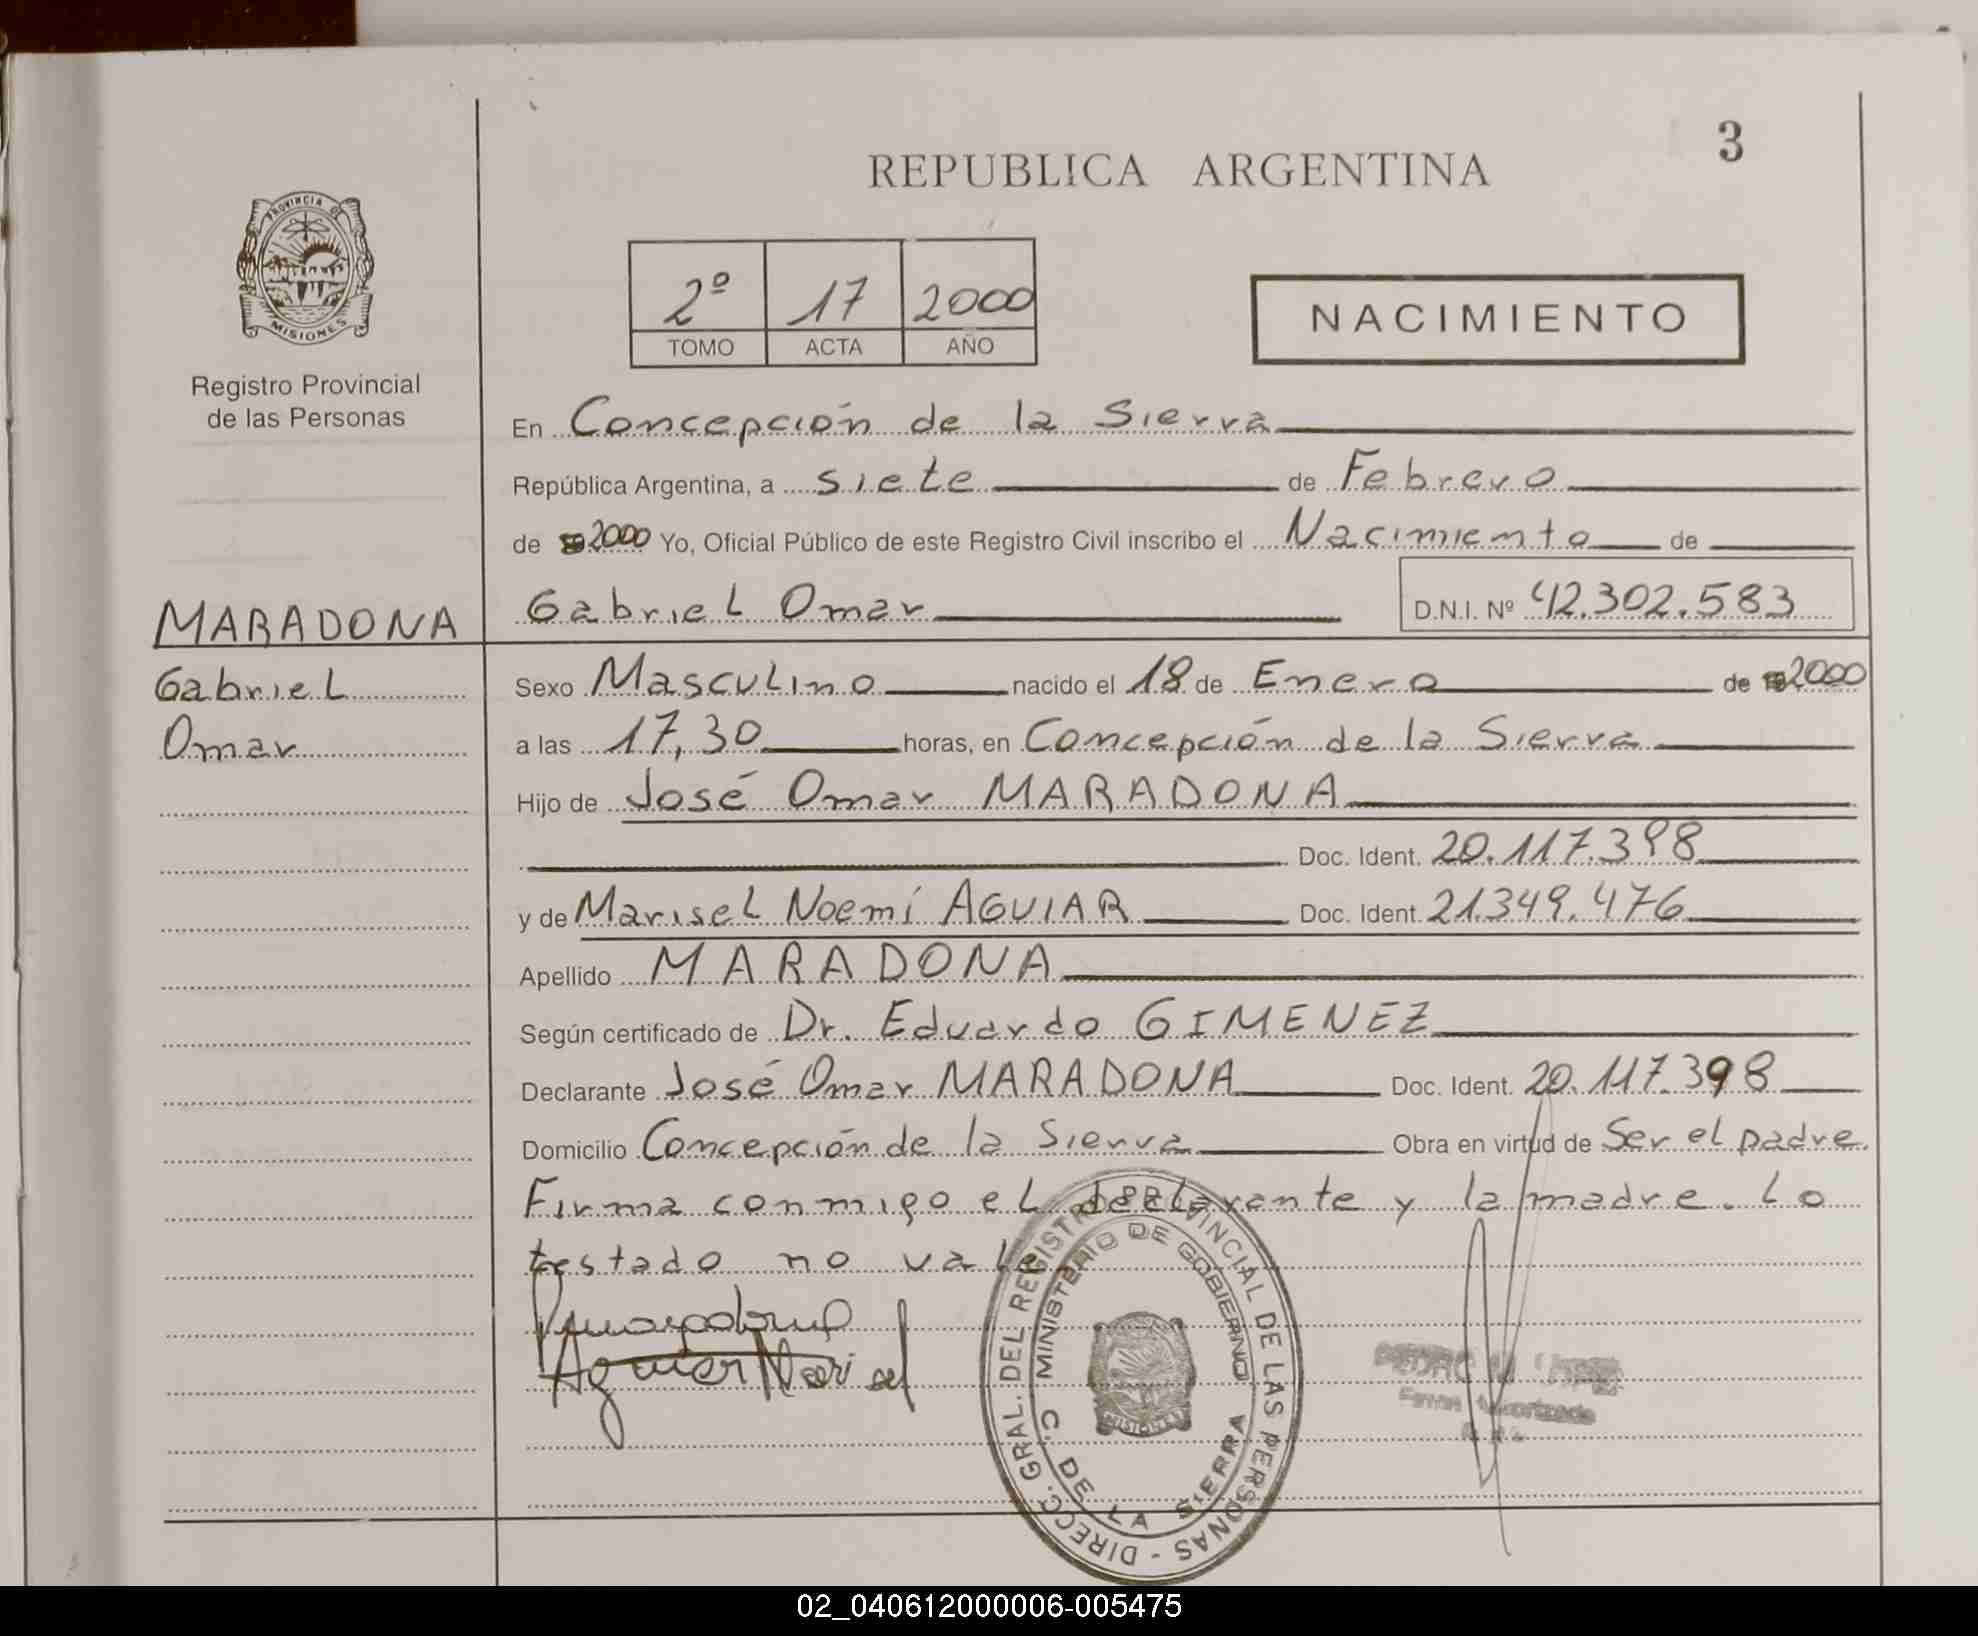 3
REPUBLICA ARGENTINA
PROVINCIA DE
MISIONES
Registro Provincial
de las Personas
2º 17 2000
TOMO ACTA AÑO
NACIMIENTO
En Concepción de la Sierra
República Argentina, a siete de Febrero
de 2000 Yo, Oficial Público de este Registro Civil inscribo el Nacimiento de
MARADONA
Gabriel Omar D.N.I. Nº 42.302.583
Gabriel
Omar
Sexo Masculino nacido el 18 de Enero de 2000
a las 17,30 horas, en Concepción de la Sierra
Hijo de José Omar MARADONA
Doc. Ident. 20.117.398
y de Marisel Noemí AGUIAR Doc. Ident. 21.349.476
Apellido MARADONA
Según certificado de Dr. Eduardo GIMENEZ
Declarante José Omar MARADONA Doc. Ident. 20.117.398
Domicilio Concepción de la Sierra Obra en virtud de Ser el padre.
Firma conmigo el declarante y la madre. Lo
testado no vale
Aguiar Marisel
DIRECC. GRAL. DEL REGISTRO PROVINCIAL DE LAS PERSONAS -
MINISTERIO DE GOBIERNO
C. DE LA SIERRA
MISIONES
02_040612000006-005475